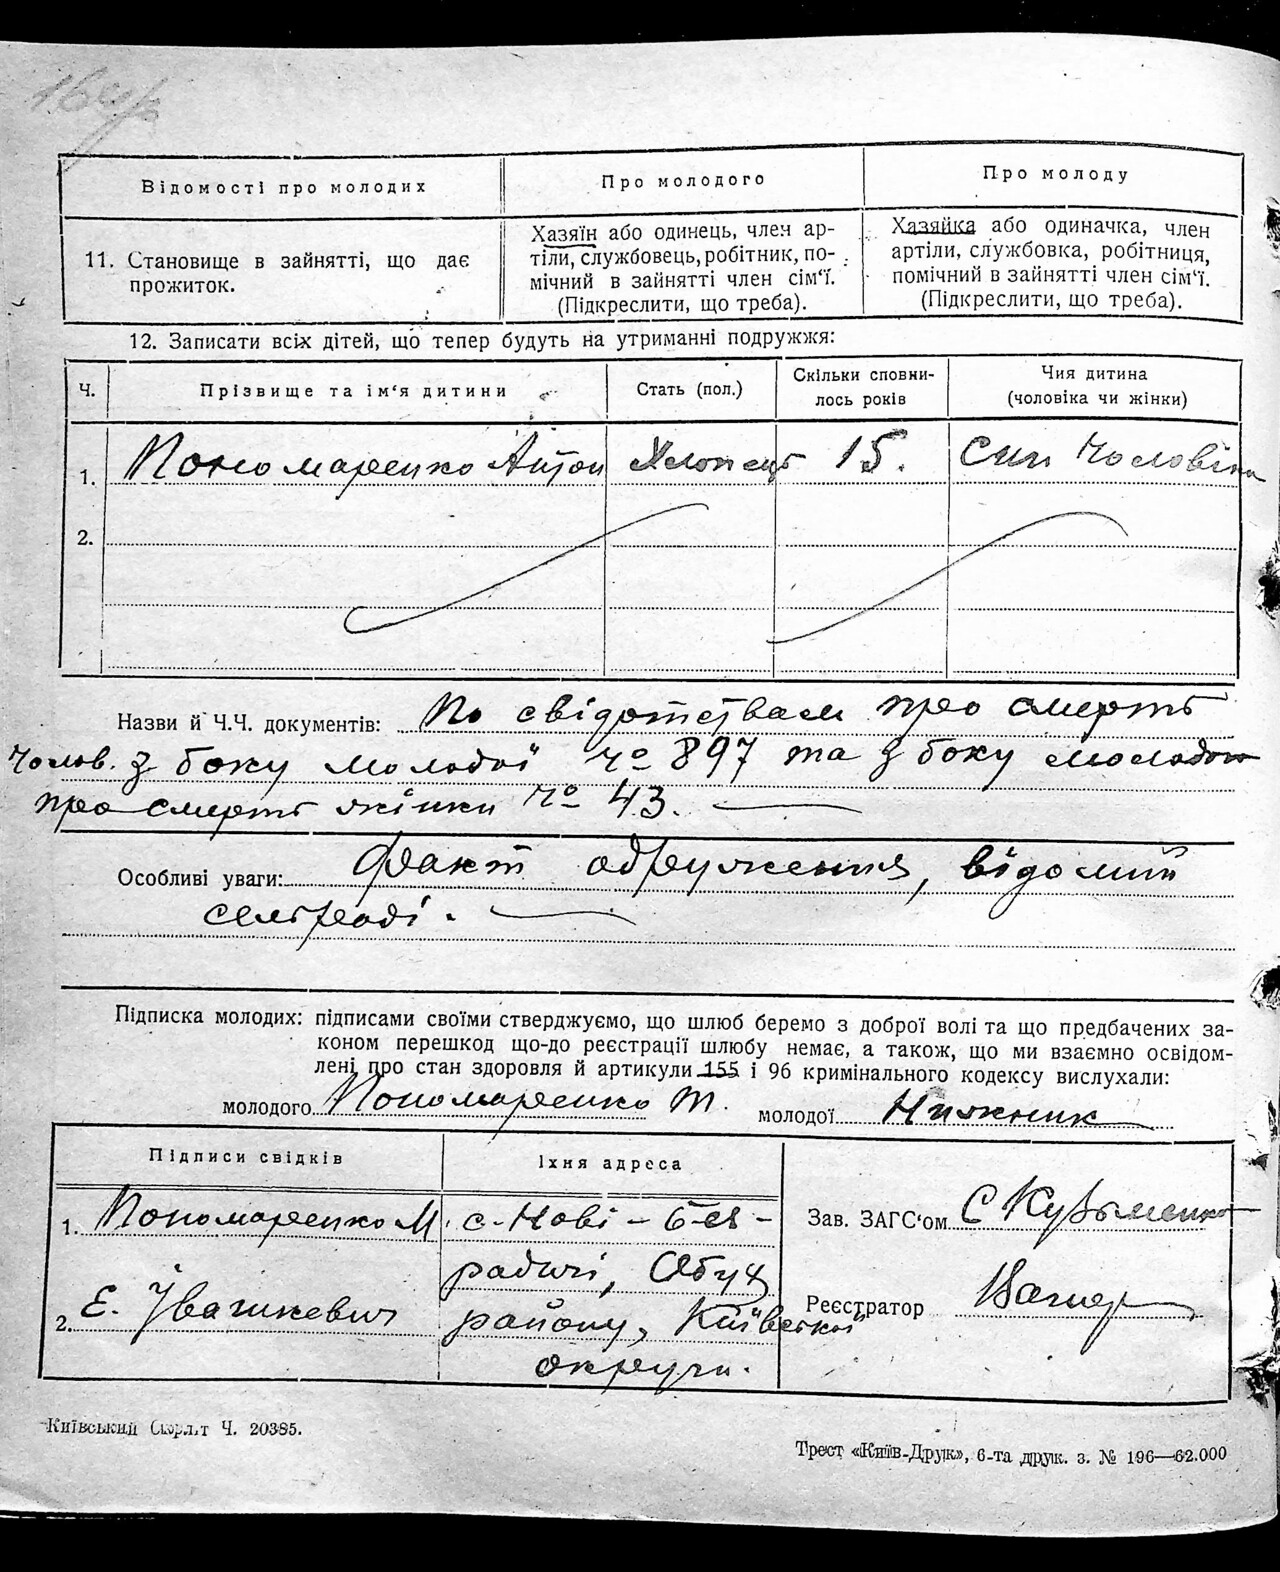 Відомості про молодих
Про молодого
Про молоду
11. Становище в зайнятті, що дає
прожиток.
Хазяїн або одинець, член ар-
тіли, службовець, робітник, по-
мічний в зайнятті член сім'ї.
(Підкреслити, що треба).
Хазяйка або одиначка, член
артіли, службовка, робітниця,
помічний в зайнятті член сім'ї.
(Підкреслити, що треба).
12. Записати всіх дітей, що тепер будуть на утриманні подружжя:
Ч.
Прізвище та ім'я дитини
Стать (пол.)
Скільки сповни-
лось років
Чия дитина
(чоловіка чи жінки)
1. Пономаренко Антон Хлопець 15. Син Чоловіка
2.
Назви й Ч.Ч. документів: По свідотствам про смерть
Чолов. з боку молодої Чо 897 та з боку молодого
про смерть жінки Чо 43.
Особливі уваги: Факт одруження, відомий
сельраді.
Підписка молодих: підписами своїми стверджуємо, що шлюб беремо з доброї волі та що предбачених за-
коном перешкод що-до реєстрації шлюбу немає, а також, що ми взаємно освідом-
лені про стан здоровля й артикули 155 і 96 кримінального кодексу вислухали:
молодого Пономаренко Т. молодої Нижник
Підписи свідків
Їхня адреса
1. Пономаренко М.
2. Е. Івашкевич
с. Нові - Без-
радичі, Обух
району, Київської
округи.
Зав. ЗАГС'ом С Кузьменко
Реєстратор
Київський Окрліт Ч. 20385.
Трест «Київ-Друк», 6-та друк. з. № 196—62.000